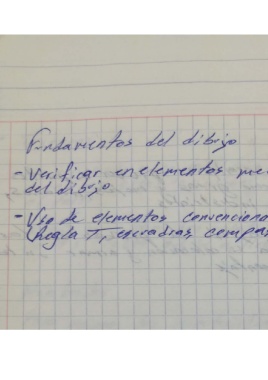 Fundamentos del dibujo
- Verificar en elementos me
del dibujo
- Uso de elementos convenciona
(Regla T, escuadras, compas